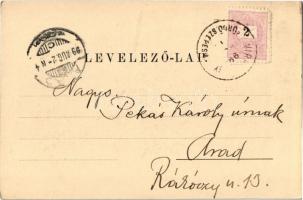 LEVELEZŐ-LAP
Nagys.
Pekás Károly úrnak
Arad
Rákóczy u. 13.